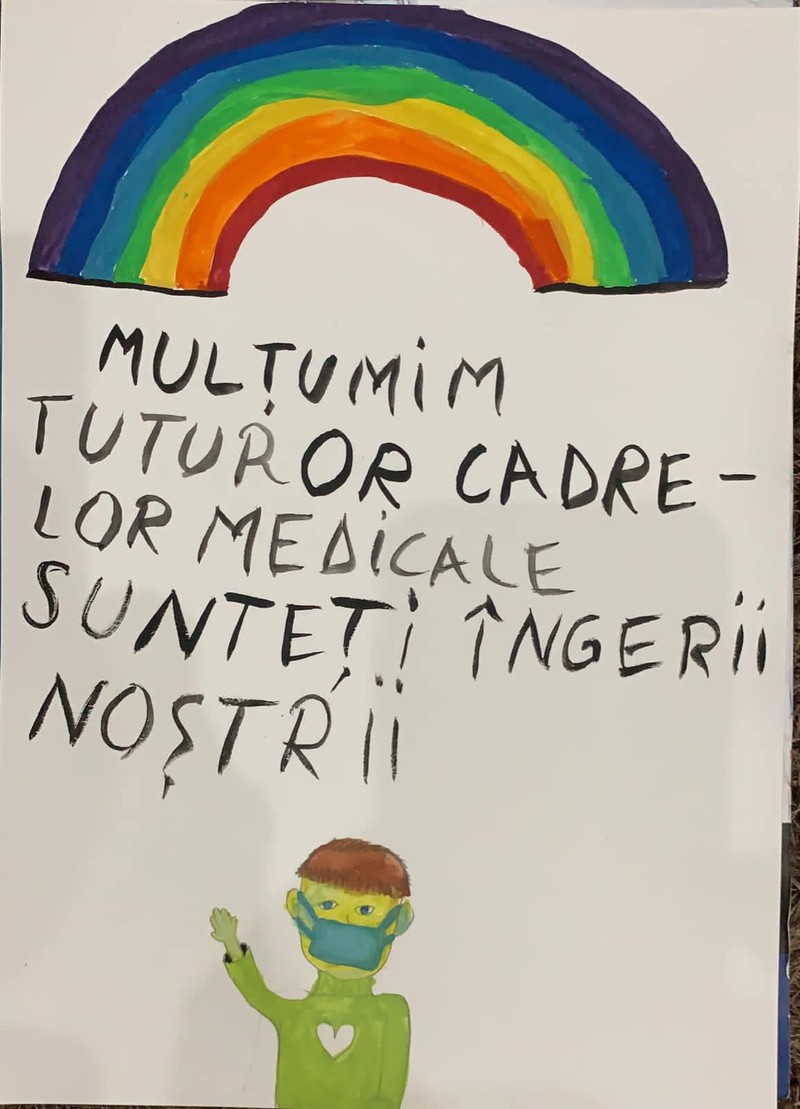 MULȚUMIM
TUTUROR CADRE-
LOR MEDICALE
SUNTEȚI ÎNGERII
NOȘTRII